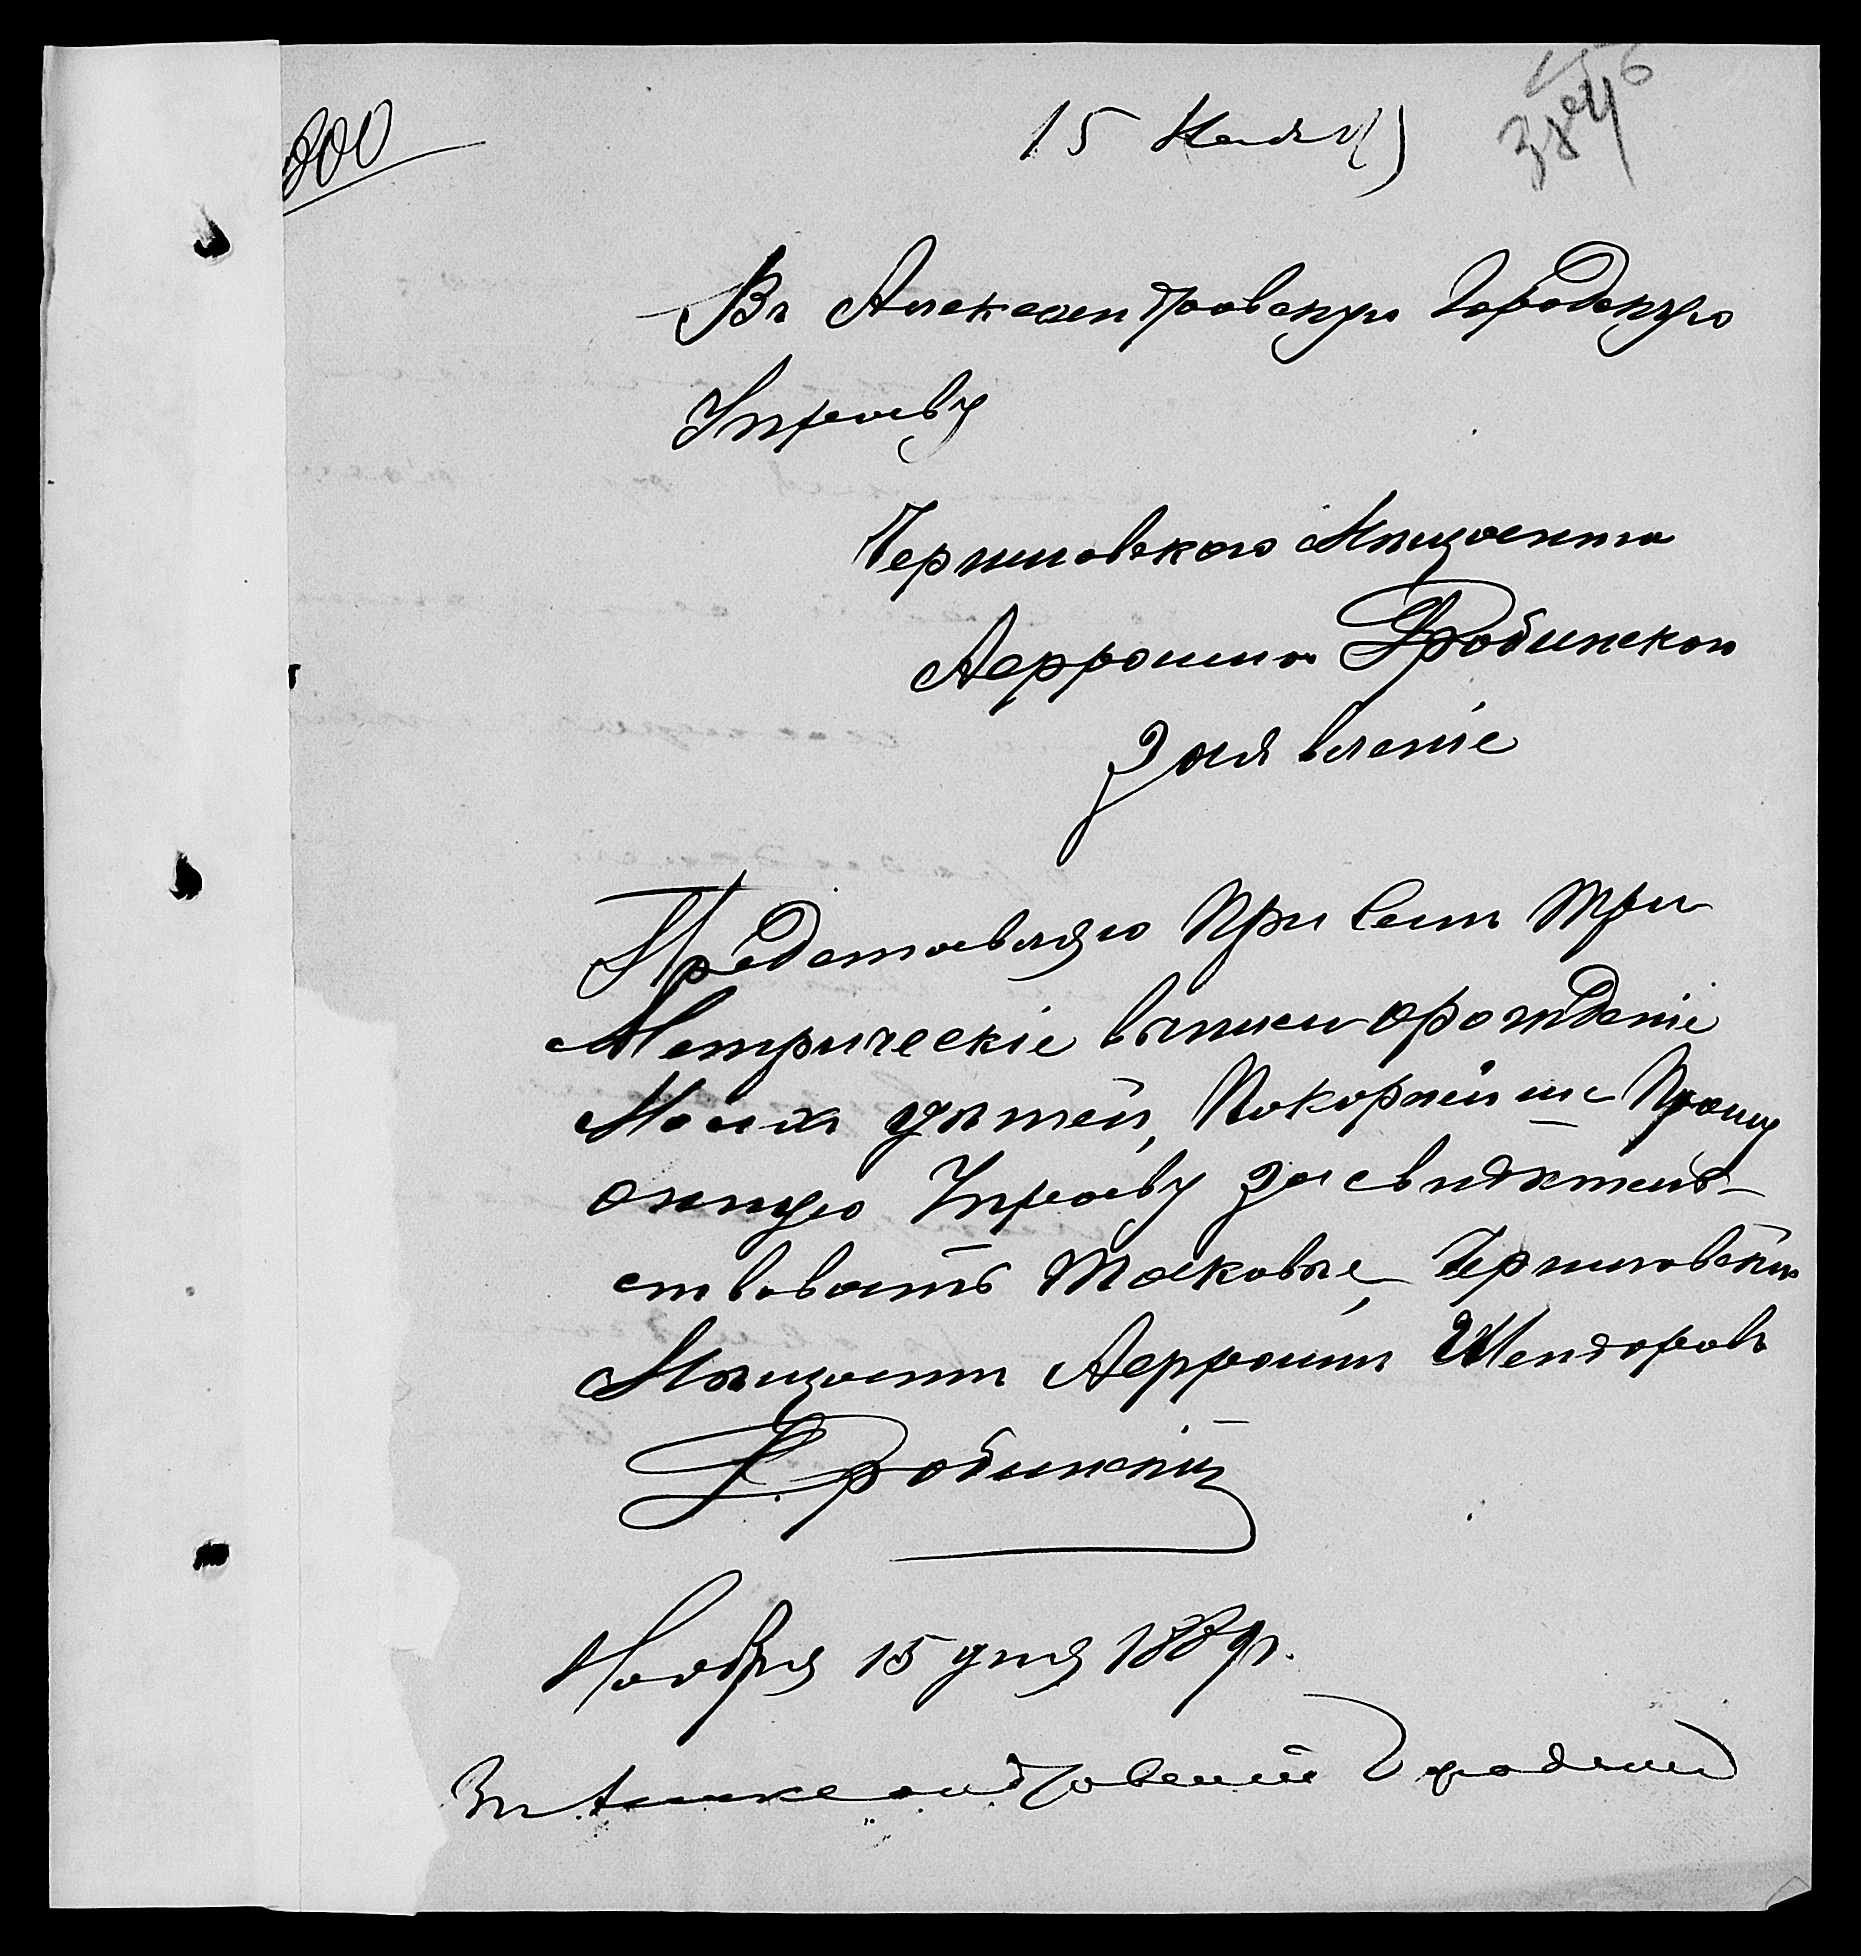 200
15 Ноября
Въ Александровскую Городскую
Управу
Черниговскаго Мѣщанина
Дробинскаго
Заявленіе
Представляю при семъ три
Метрическіе выписи о рожденіе
Моихъ дѣтей, Покорнѣйше Прошу
оную Управу засвидѣтель-
ствовать таковые, Черниговскій
Мѣщанинъ
Дробинскій
Ноября 15 дня 1889 г.
Городской